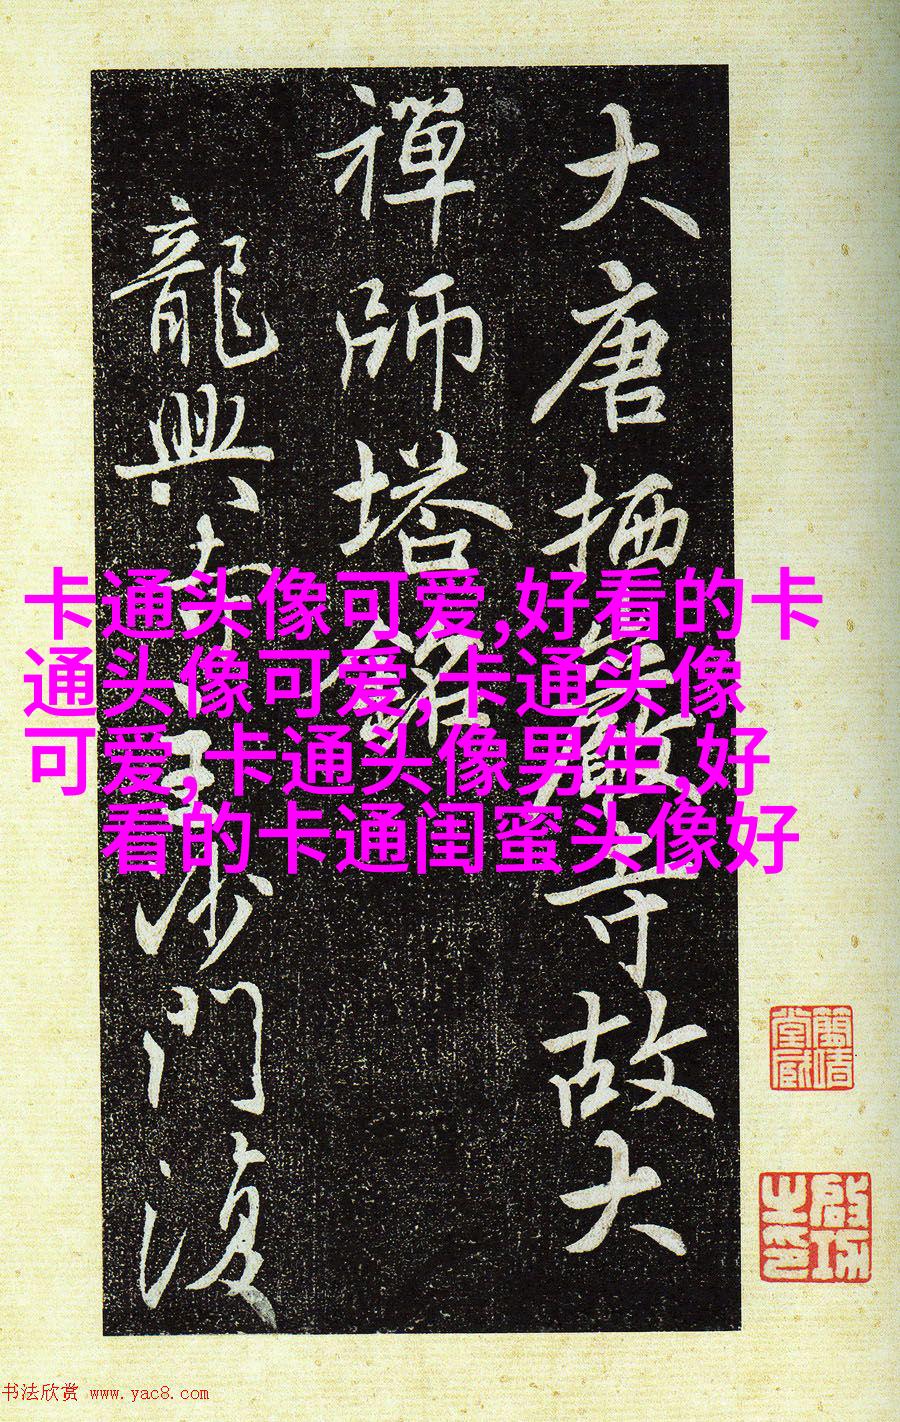 大唐栖巖寺故大
禪師塔銘
龍興沙門復
卡通头像可爱,好看的卡
通头像可爱,卡通头像
可爱,卡通头像男生,好
看的卡通闺蜜头像好
啟功之印
书法欣赏 www.yac8.com